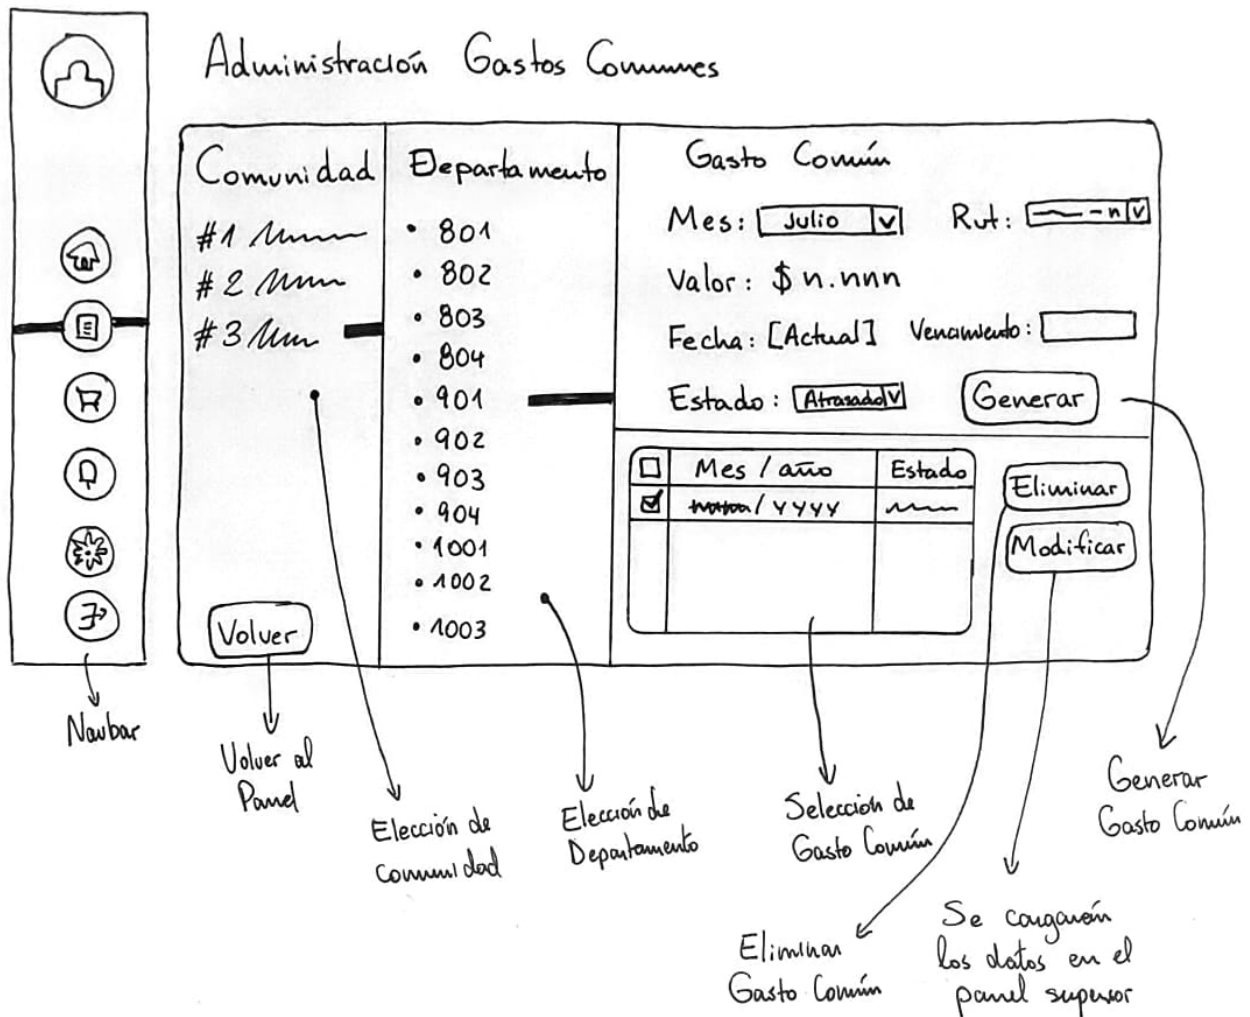 Administración Gastos Comunes
Comunidad
#1
#2
#3
Volver
Departamento
• 801
• 802
• 803
• 804
• 901
• 902
• 903
• 904
• 1001
• 1002
• 1003
Gasto Común
Mes: Julio Rut: - n
Valor: $ n.nnn
Fecha: [Actual] Vencimiento:
Estado: Atrasado Generar
Mes / año Estado
/ YYYY
Eliminar
Modificar
Navbar
Volver al
Panel
Elección de
comunidad
Elección de
Departamento
Selección de
Gasto Común
Eliminar
Gasto Común
Se cargarán
los datos en el
panel superior
Generar
Gasto Común